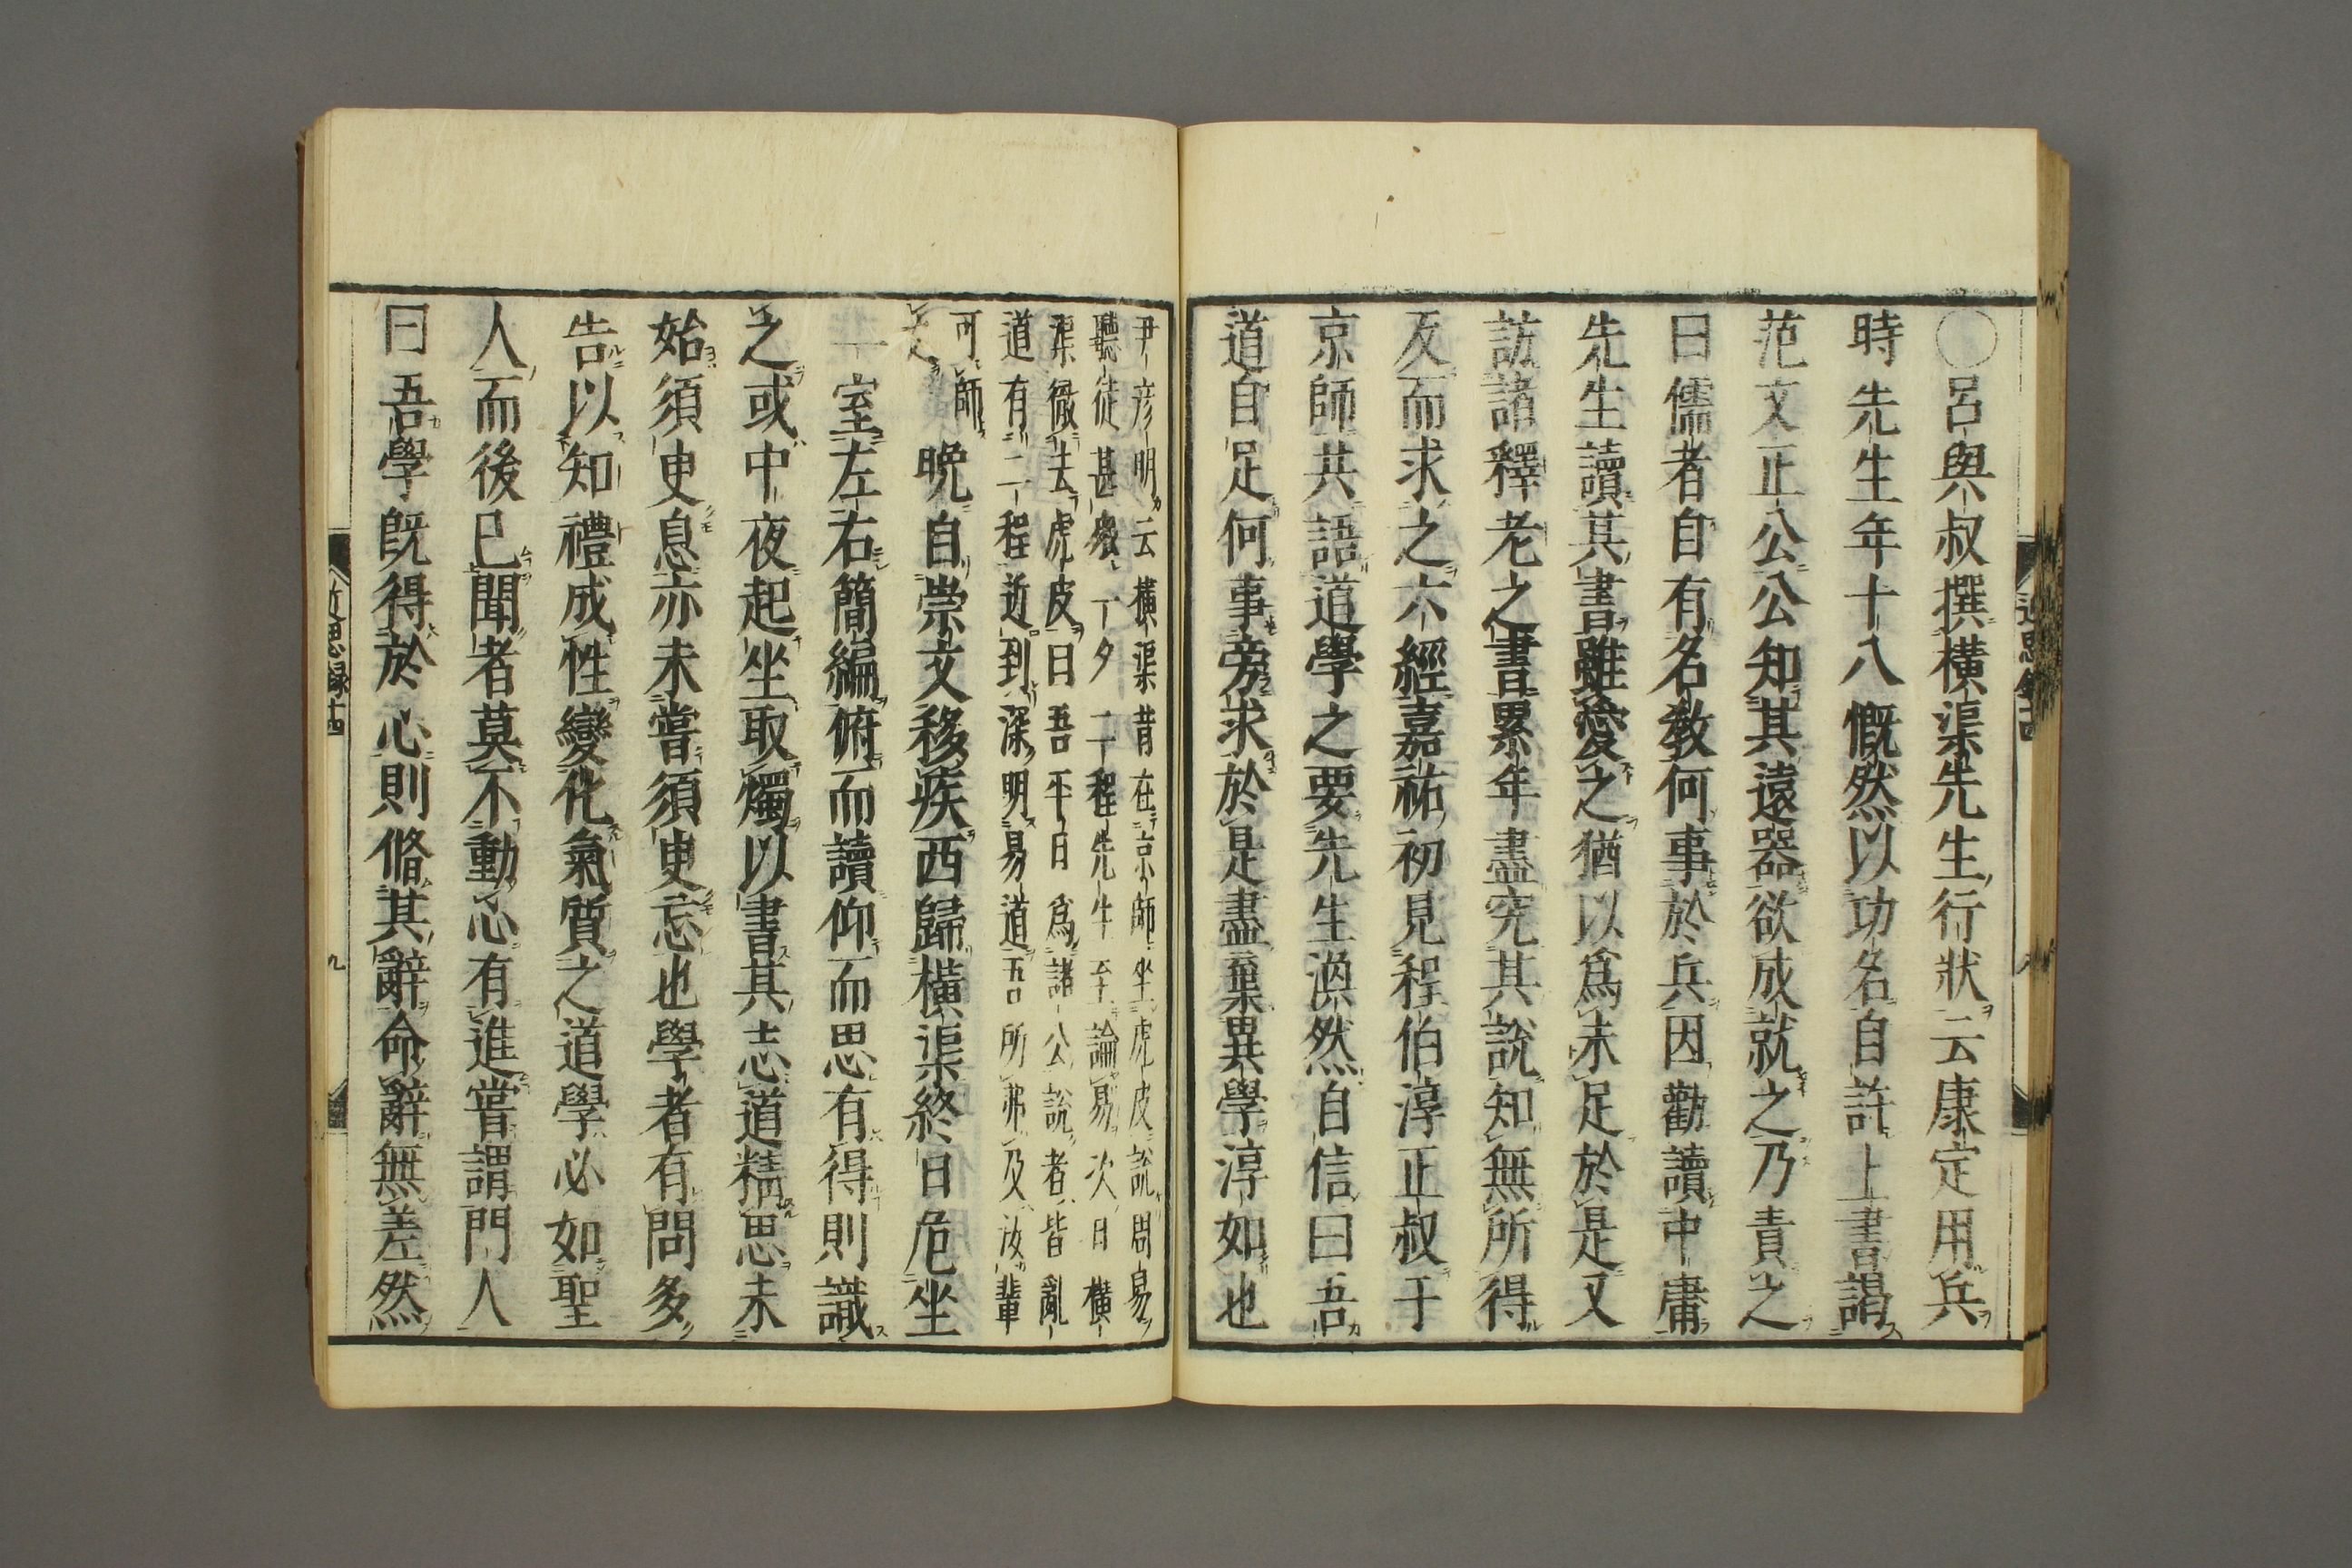 ○呂與叔撰橫渠先生行狀云康定用兵
時先生年十八慨然以功名自許上書謁
范文正公公知其遠器欲成就之乃責之
曰儒者自有名教何事於兵因勸讀中庸
先生讀其書雖愛之猶以爲未足於是又
訪諸釋老之書累年盡究其說知無所得
反而求之六經嘉祐初見程伯淳正叔于
京師共語道學之要先生渙然自信曰吾
道自足何事旁求於是盡棄異學淳如也
尹彦明云橫渠昔在京師坐虎皮說周易
聽徒甚衆一夕二程先生至論易次日橫
渠徹去虎皮曰吾平日爲諸公說者皆亂
道有二程近到深明易道吾所弗及汝輩
可師
之
晩自崇文移疾西歸橫渠終日危坐
一室左右簡編俯而讀仰而思有得則識
之或中夜起坐取燭以書其志道精思未
始須臾息亦未嘗須臾忘也學者有問多
告以知禮成性變化氣質之道學必如聖
人而後已聞者莫不動心有進嘗謂門人
曰吾學既得於心則脩其辭命辭無差然
近思録十四
九